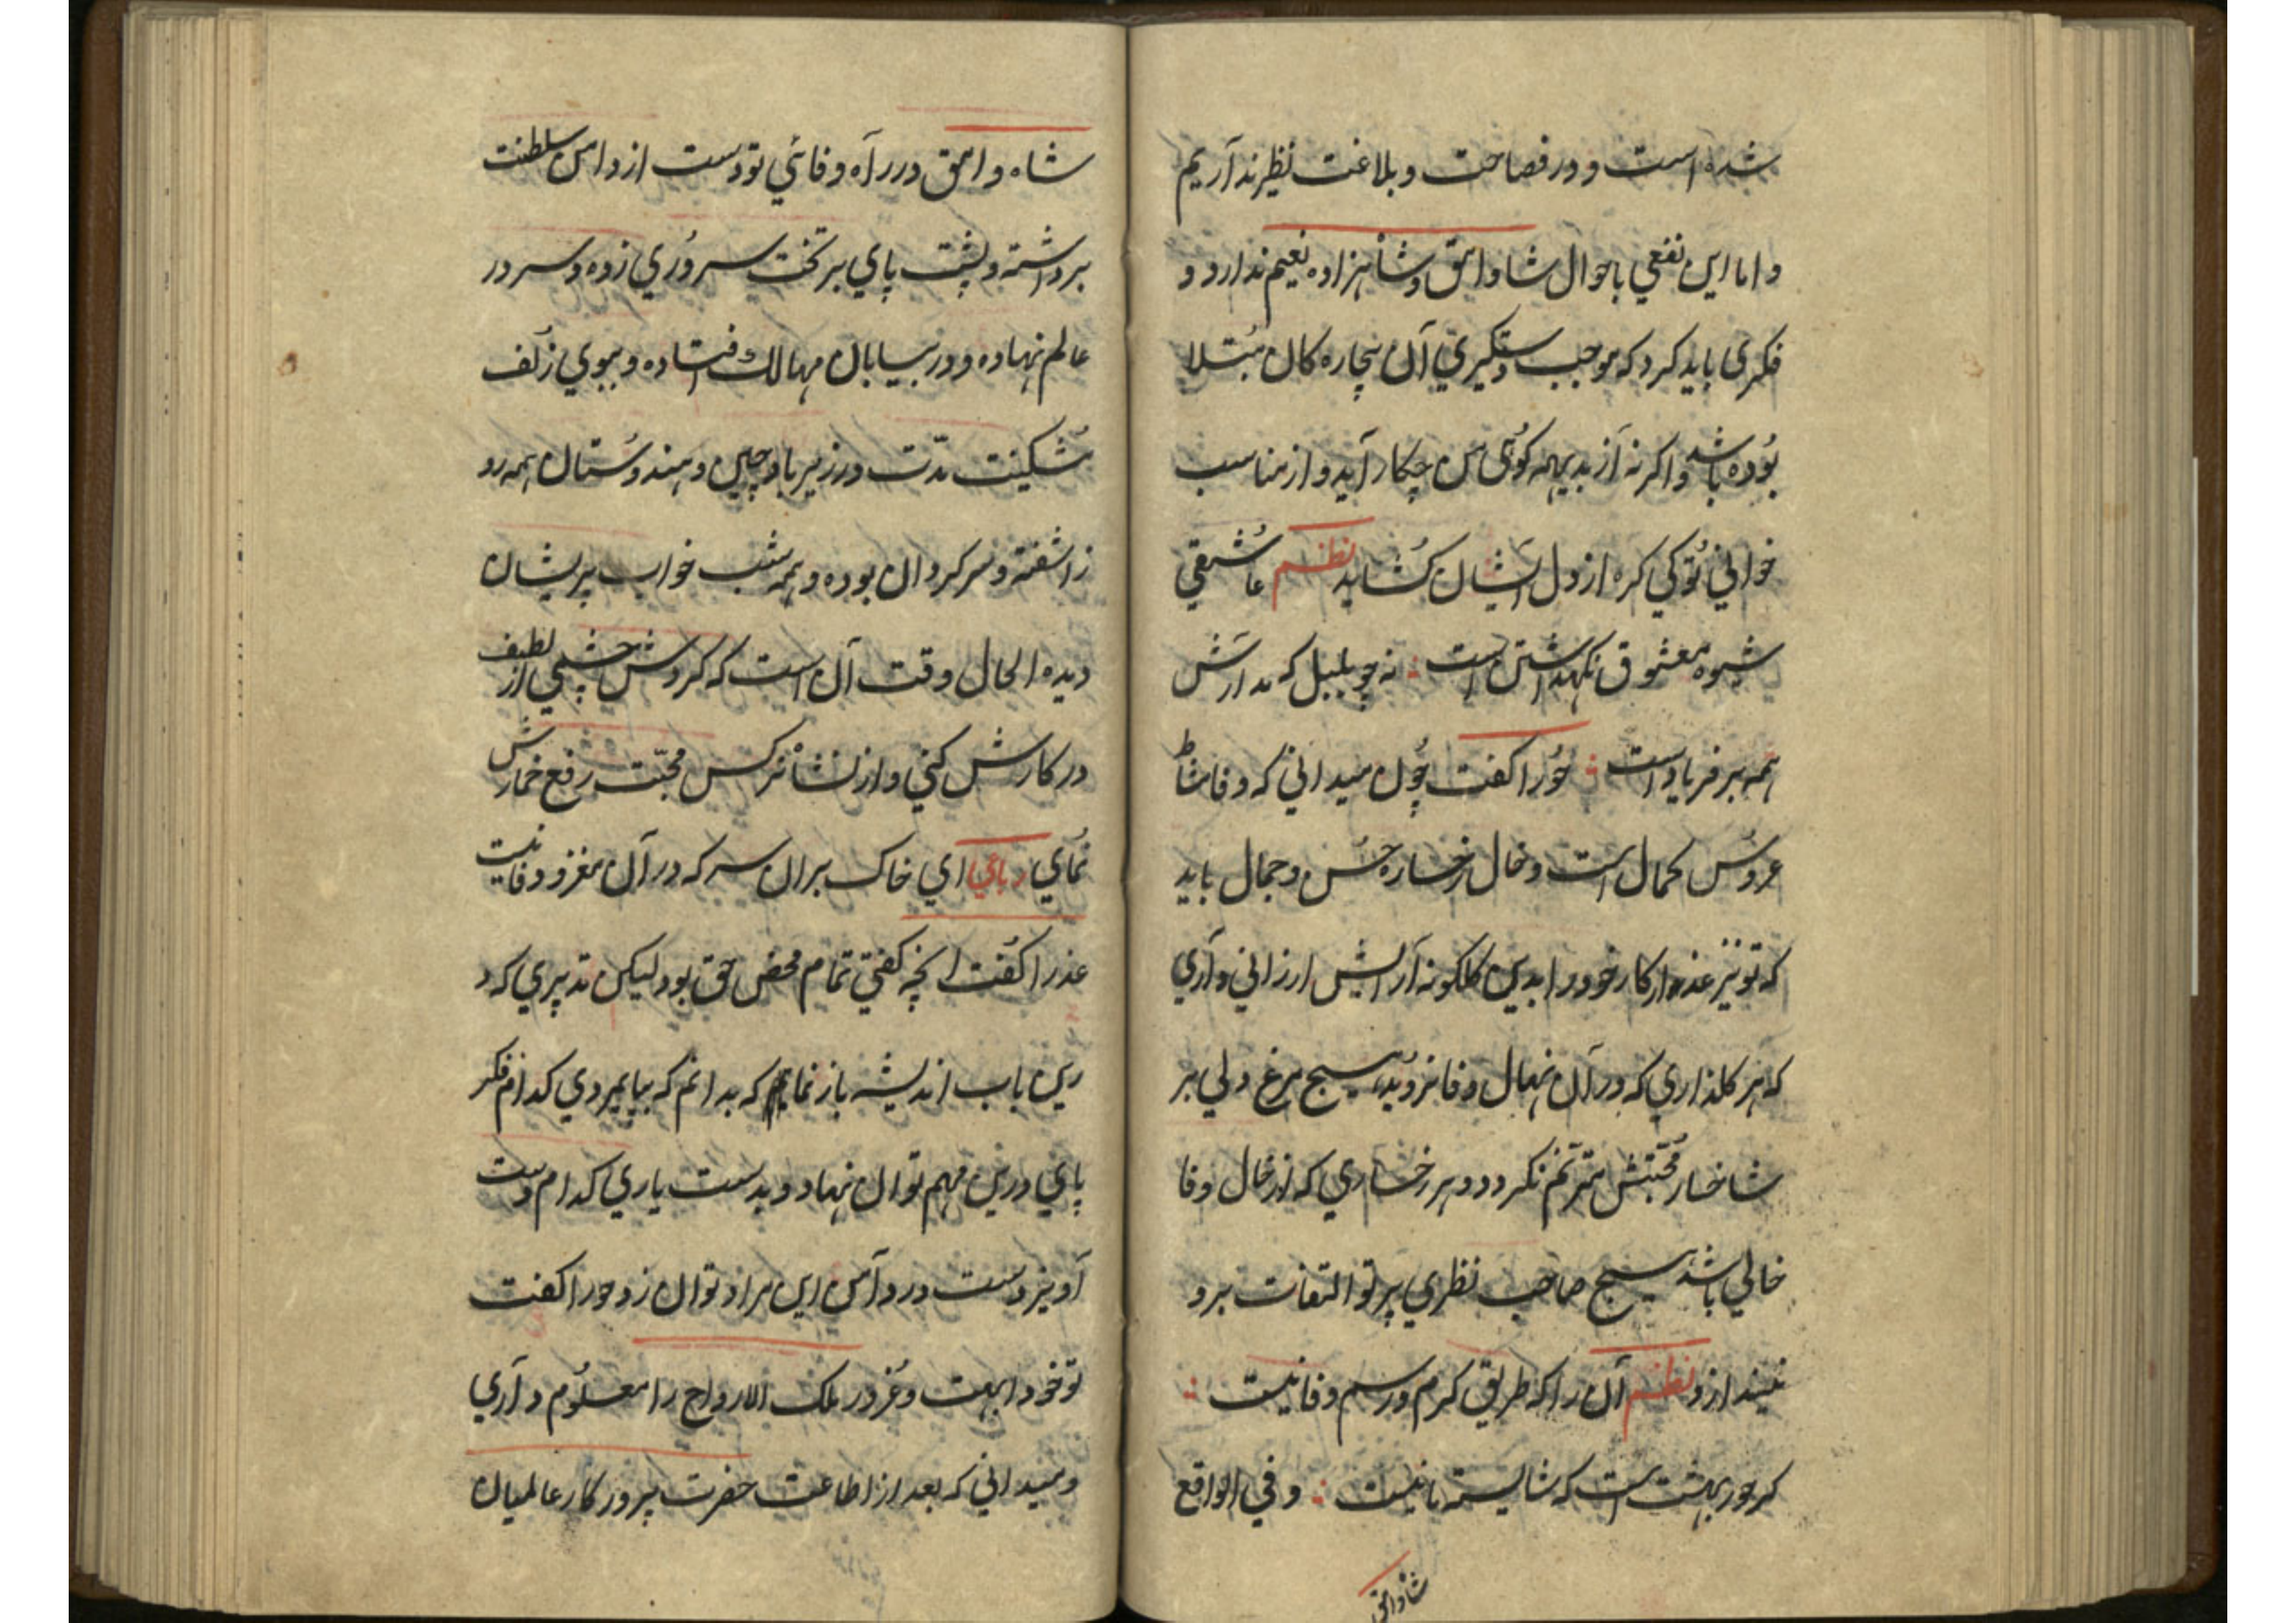 شده است و در فصاحت و بلاغت نظیر ندآریم
و اما این نفعی باحوال شاوامق و شاهزاده نعیم ندارد و
فکری باید کرد که موجب دستکیری آن بیچاره کان مبتلا
بوده باشد و اکرنه از بدیهه کوئی من چکار آید و از مناسب
خوانی تو کی کره از دل ایشان کشاید نظم عاشقی
شیوه معشوق نکهداشتن است نه چو بلبل که
همه بر فریاد است حورا کفت چون میدانی که وفا مشاطٔ
عروس کمال است و خال رخساره حسن و جمال باید
که تو نیز عذار کار خود را بدین کلکونه آرایش ارزانی دآری
که هر کلذاری که در آن نهال وفا نروید هیچ مرغ دلی بر
شاخسار محبتش مترنم نکردد و هر رخساری که از خال وفا
خالی باشد هیچ صاحب نظری پرتو التفات برو
نیندازد نظم آن را که طریق کرم و رسم وفا نیست
کر حور بهشت است که شایسته ما نیست و فی الواقع
شاه وامق
شاه وامق در رآه وفائي تو دست از دامن سلطنت
برداشته و پشت پاي بر تخت سروري زده و سر در
عالم نهاده و در بیابان مهالک افتاده و ببوي زلف
مشکینت مدت در زیر باد چین و هندوستان همه رو
زاشفته و سرکردان بوده و همه شب خواب پریشان
دیده الحال وقت آن است که کردش چشمي از لطیف
در کارش کني و از نشأ نرکس محبت رفع خمارش
نماي رباعي اي خاک بران سر که در آن مغز وفا نیست
عذرا کفت انچه کفتي تمام محض حق بود لیکن تدبیري که د
رین باب اندیشه باز نمایم که بدانم که بپایمردي کدام فکر
پاي درین مهم توان نهاد و بدست یاري کدام دست
آویز دست در دآمن این مراد توان زد حورا کفت
تو خود ابهت و غرور ملک الارواح را معلوم دآري
و میداني که بعد از اطاعت حضرت پرورکار عالمیان